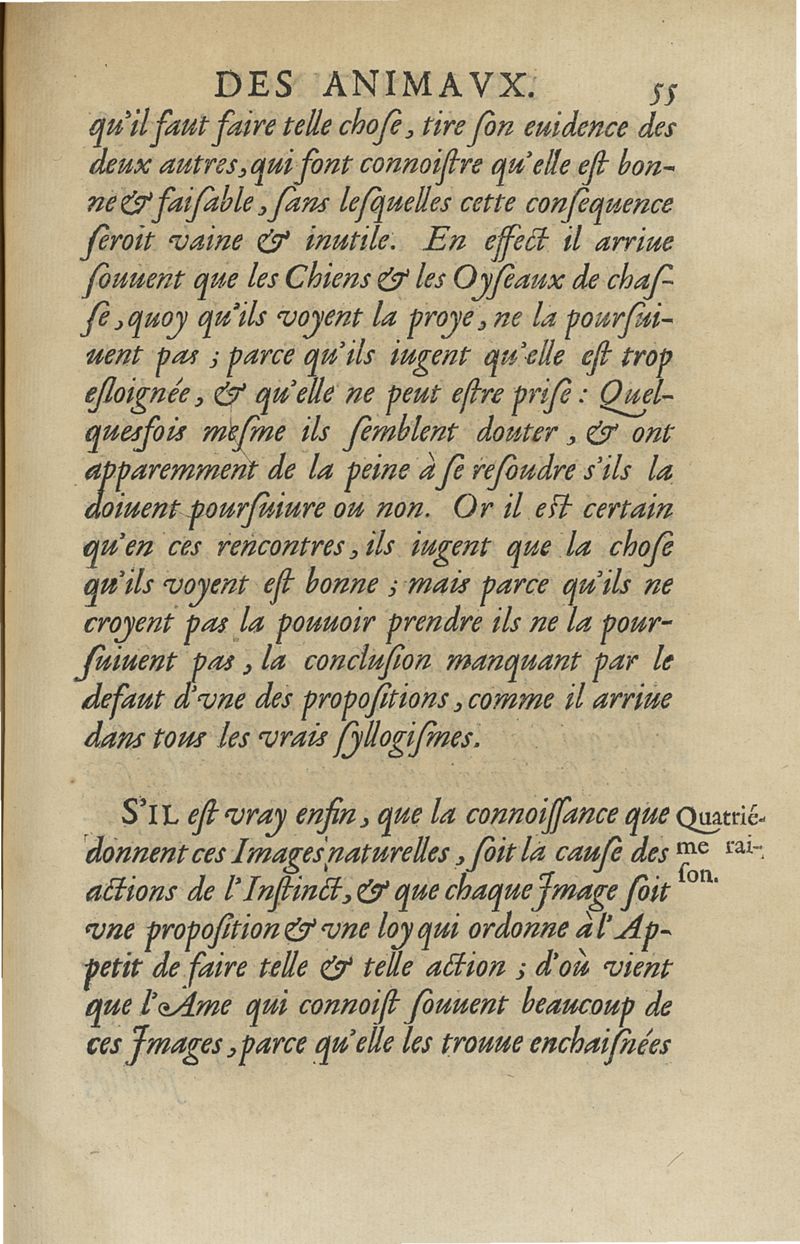 DES ANIMAVX. 55
qu'il faut faire telle choſe, tire ſon euidence des
deux autres, qui font connoiſtre qu'elle eſt bon-
ne & faiſable, ſans leſquelles cette conſequence
ſeroit vaine & inutile. En effect il arriue
ſouuent que les Chiens & les Oyſeaux de chaſ-
ſe, quoy qu'ils voyent la proye, ne la pourſui-
uent pas ; parce qu'ils iugent qu'elle eſt trop
eſloignée, & qu'elle ne peut eſtre priſe : Quel-
quesfois meſme ils ſemblent douter, & ont
apparemment de la peine à ſe reſoudre s'ils la
doiuent pourſuiure ou non. Or il eſt certain
qu'en ces rencontres, ils iugent que la choſe
qu'ils voyent eſt bonne ; mais parce qu'ils ne
croyent pas la pouuoir prendre ils ne la pour-
ſuiuent pas, la concluſion manquant par le
defaut d'vne des propoſitions, comme il arriue
dans tous les vrais ſyllogiſmes.
S'IL eſt vray enfin, que la connoiſſance que
donnent ces Images naturelles, ſoit la cauſe des
actions de l'Inſtinct, & que chaque Image ſoit
vne propoſition & vne loy qui ordonne à l'Ap-
petit de faire telle & telle action ; d'où vient
que l'Ame qui connoiſt ſouuent beaucoup de
ces Images, parce qu'elle les trouue enchaiſnées
Quatrié-
me rai-
ſon.